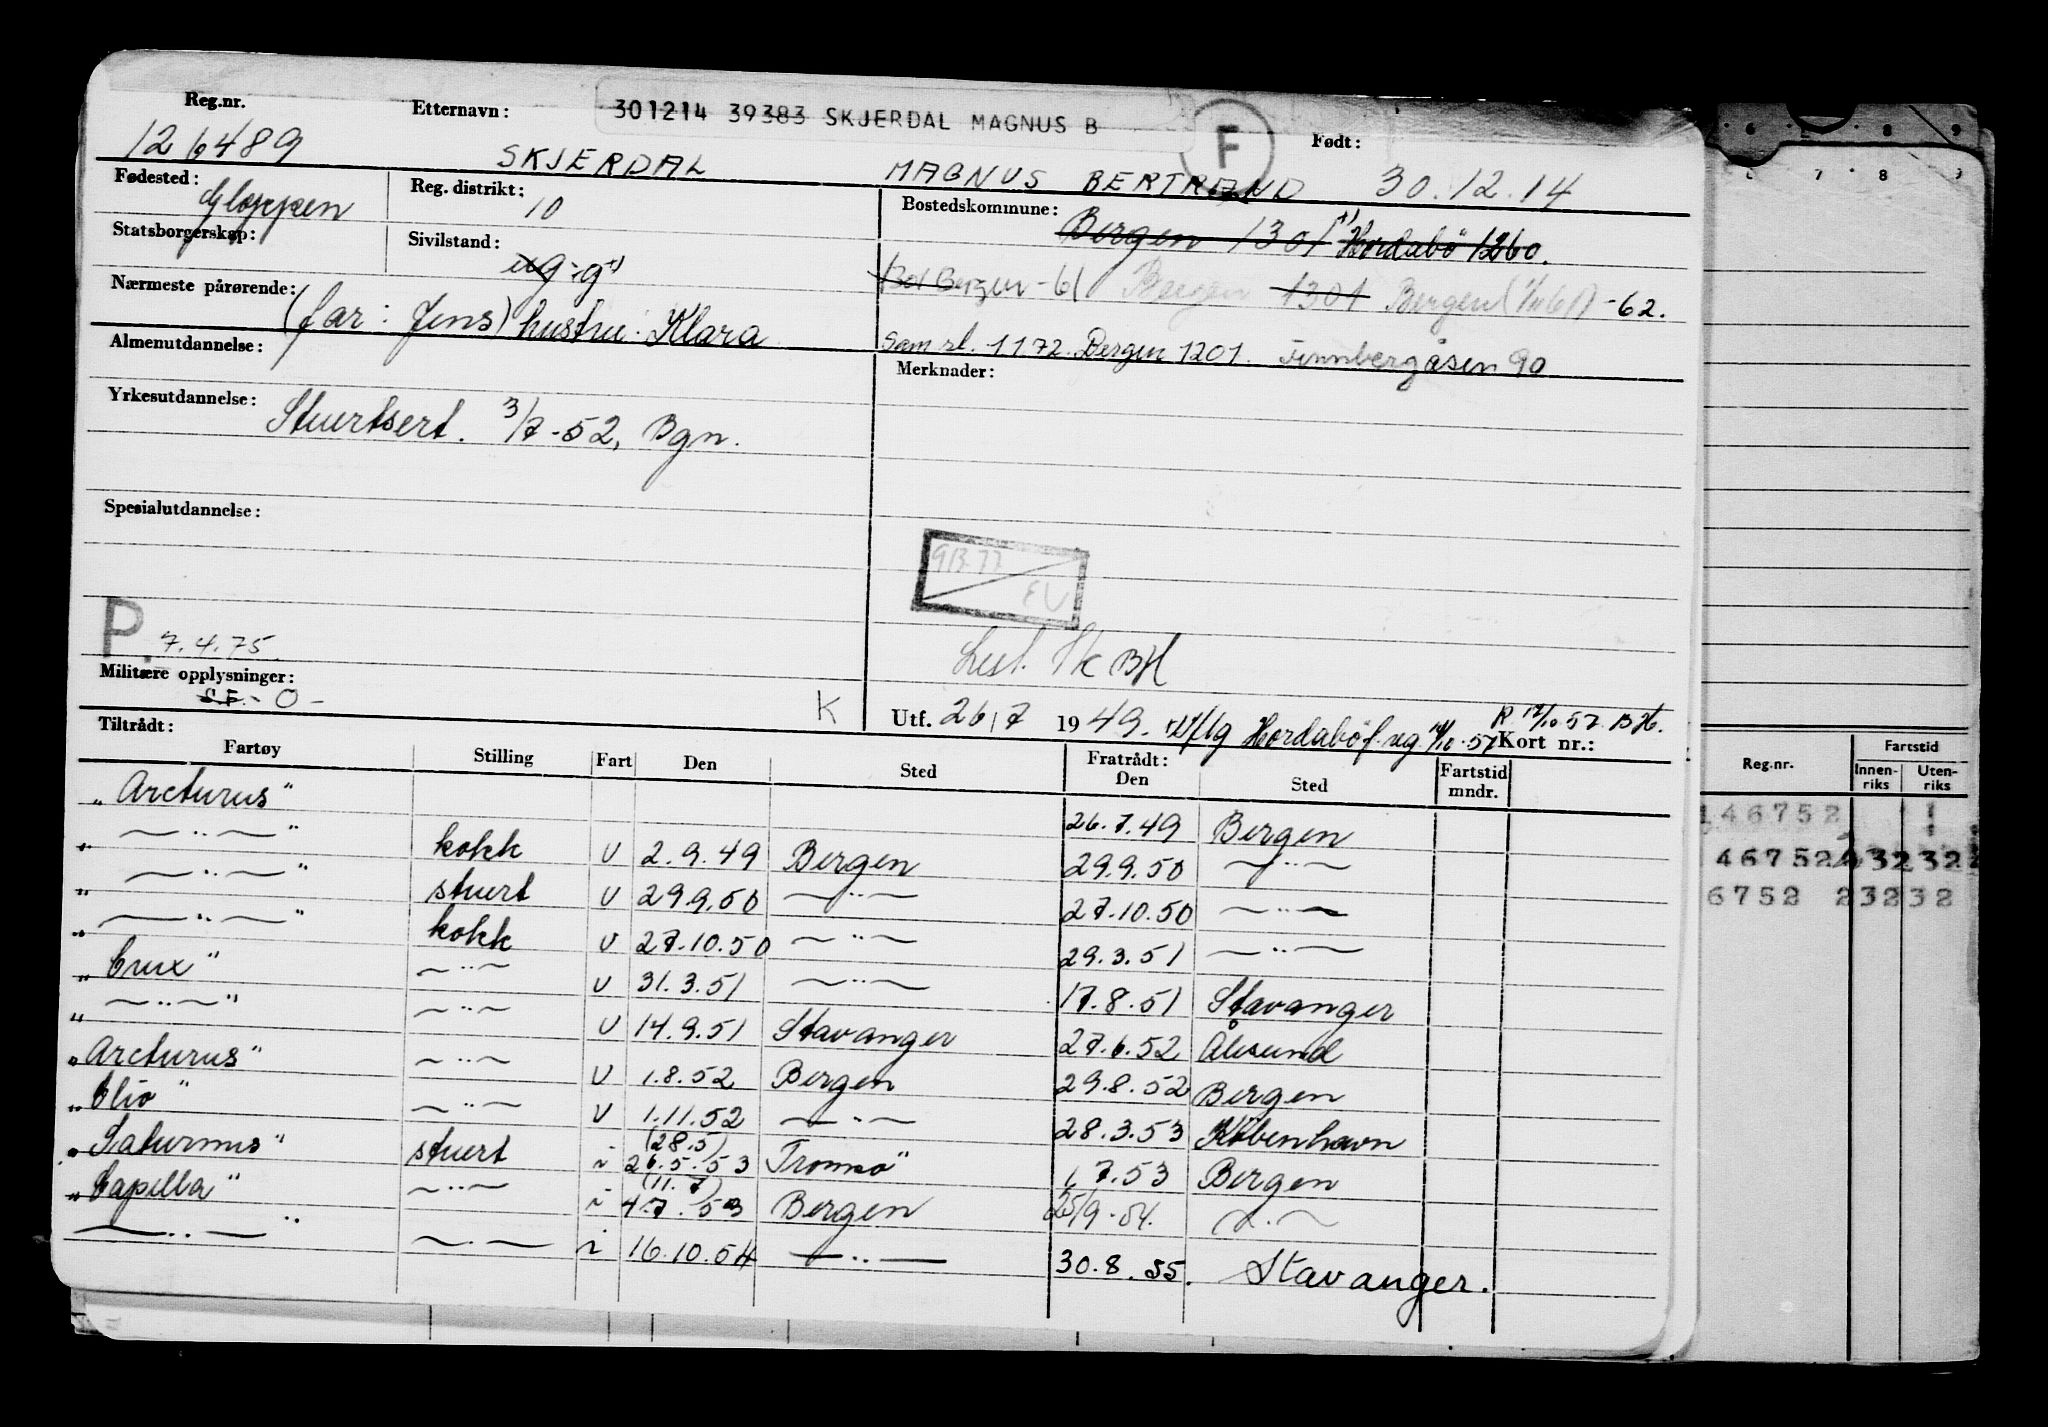 Reg.nr. Etternavn: 301214 39383 SKJERDAL MAGNUS B F Født:
126489 SKJERDAL MAGNUS BERTRAND 30.12.14
Fødested: Gloppen Reg. distrikt: 10 Bostedskommune: Bergen 1301 +) Hordabö 1260.
Statsborgerskap: Sivilstand: ug: g +)
1301 Bergen -61 Bergen 1301 Bergen -62.
Nærmeste pårørende: (far: Jens) hustru: Klara
Sam.rl. 1172. Bergen 1201. Finnbergåsen 90
Almenutdannelse: Merknader:
Yrkesutdannelse: Stuertsert. 3/7-52, Bgn.
Spesialutdannelse:
77
EU
P. 7.4.75.
BH
Militære opplysninger: S.F. - O - K Utf. 26/7 1949. Hordabö f. reg 14/10-57 R 17/10 57. BH. Kort nr.:
Tiltrådt: Fratrådt:
Fartøy Stilling Fart Den Sted Den Sted Fartstid mndr.
"Arcturus" 26.7.49 Bergen
" —..— " kokk U 2.9.49 Bergen 29.9.50 —..—
" —..— " stuert U 29.9.50 —..— 27.10.50 —..—
" —..— " kokk U 27.10.50 —..— 29.3.51 —..—
"Crux" —..— U 31.3.51 —..— 17.8.51 Stavanger
" —..— " —..— U 14.9.51 Stavanger 27.6.52 Ålesund
"Arcturus" —..— U 1.8.52 Bergen 29.8.52 Bergen
"Clio" —..— U 1.11.52 —..— 28.3.53 København
"Saturnus" stuert i (28.5) 26.5.53 Tromsø 1.7.53 Bergen
"Capella" —..— i (11.7) 4.7.53 Bergen 25/9-54. —..—
—..— " —..— i 16.10.54 —..— 30.8.55. Stavanger.
6 7 8 9
6 7 8 9
Reg.nr. Fartstid
Innen-riks Uten-riks
146752
46752 232 32
6752 232 32